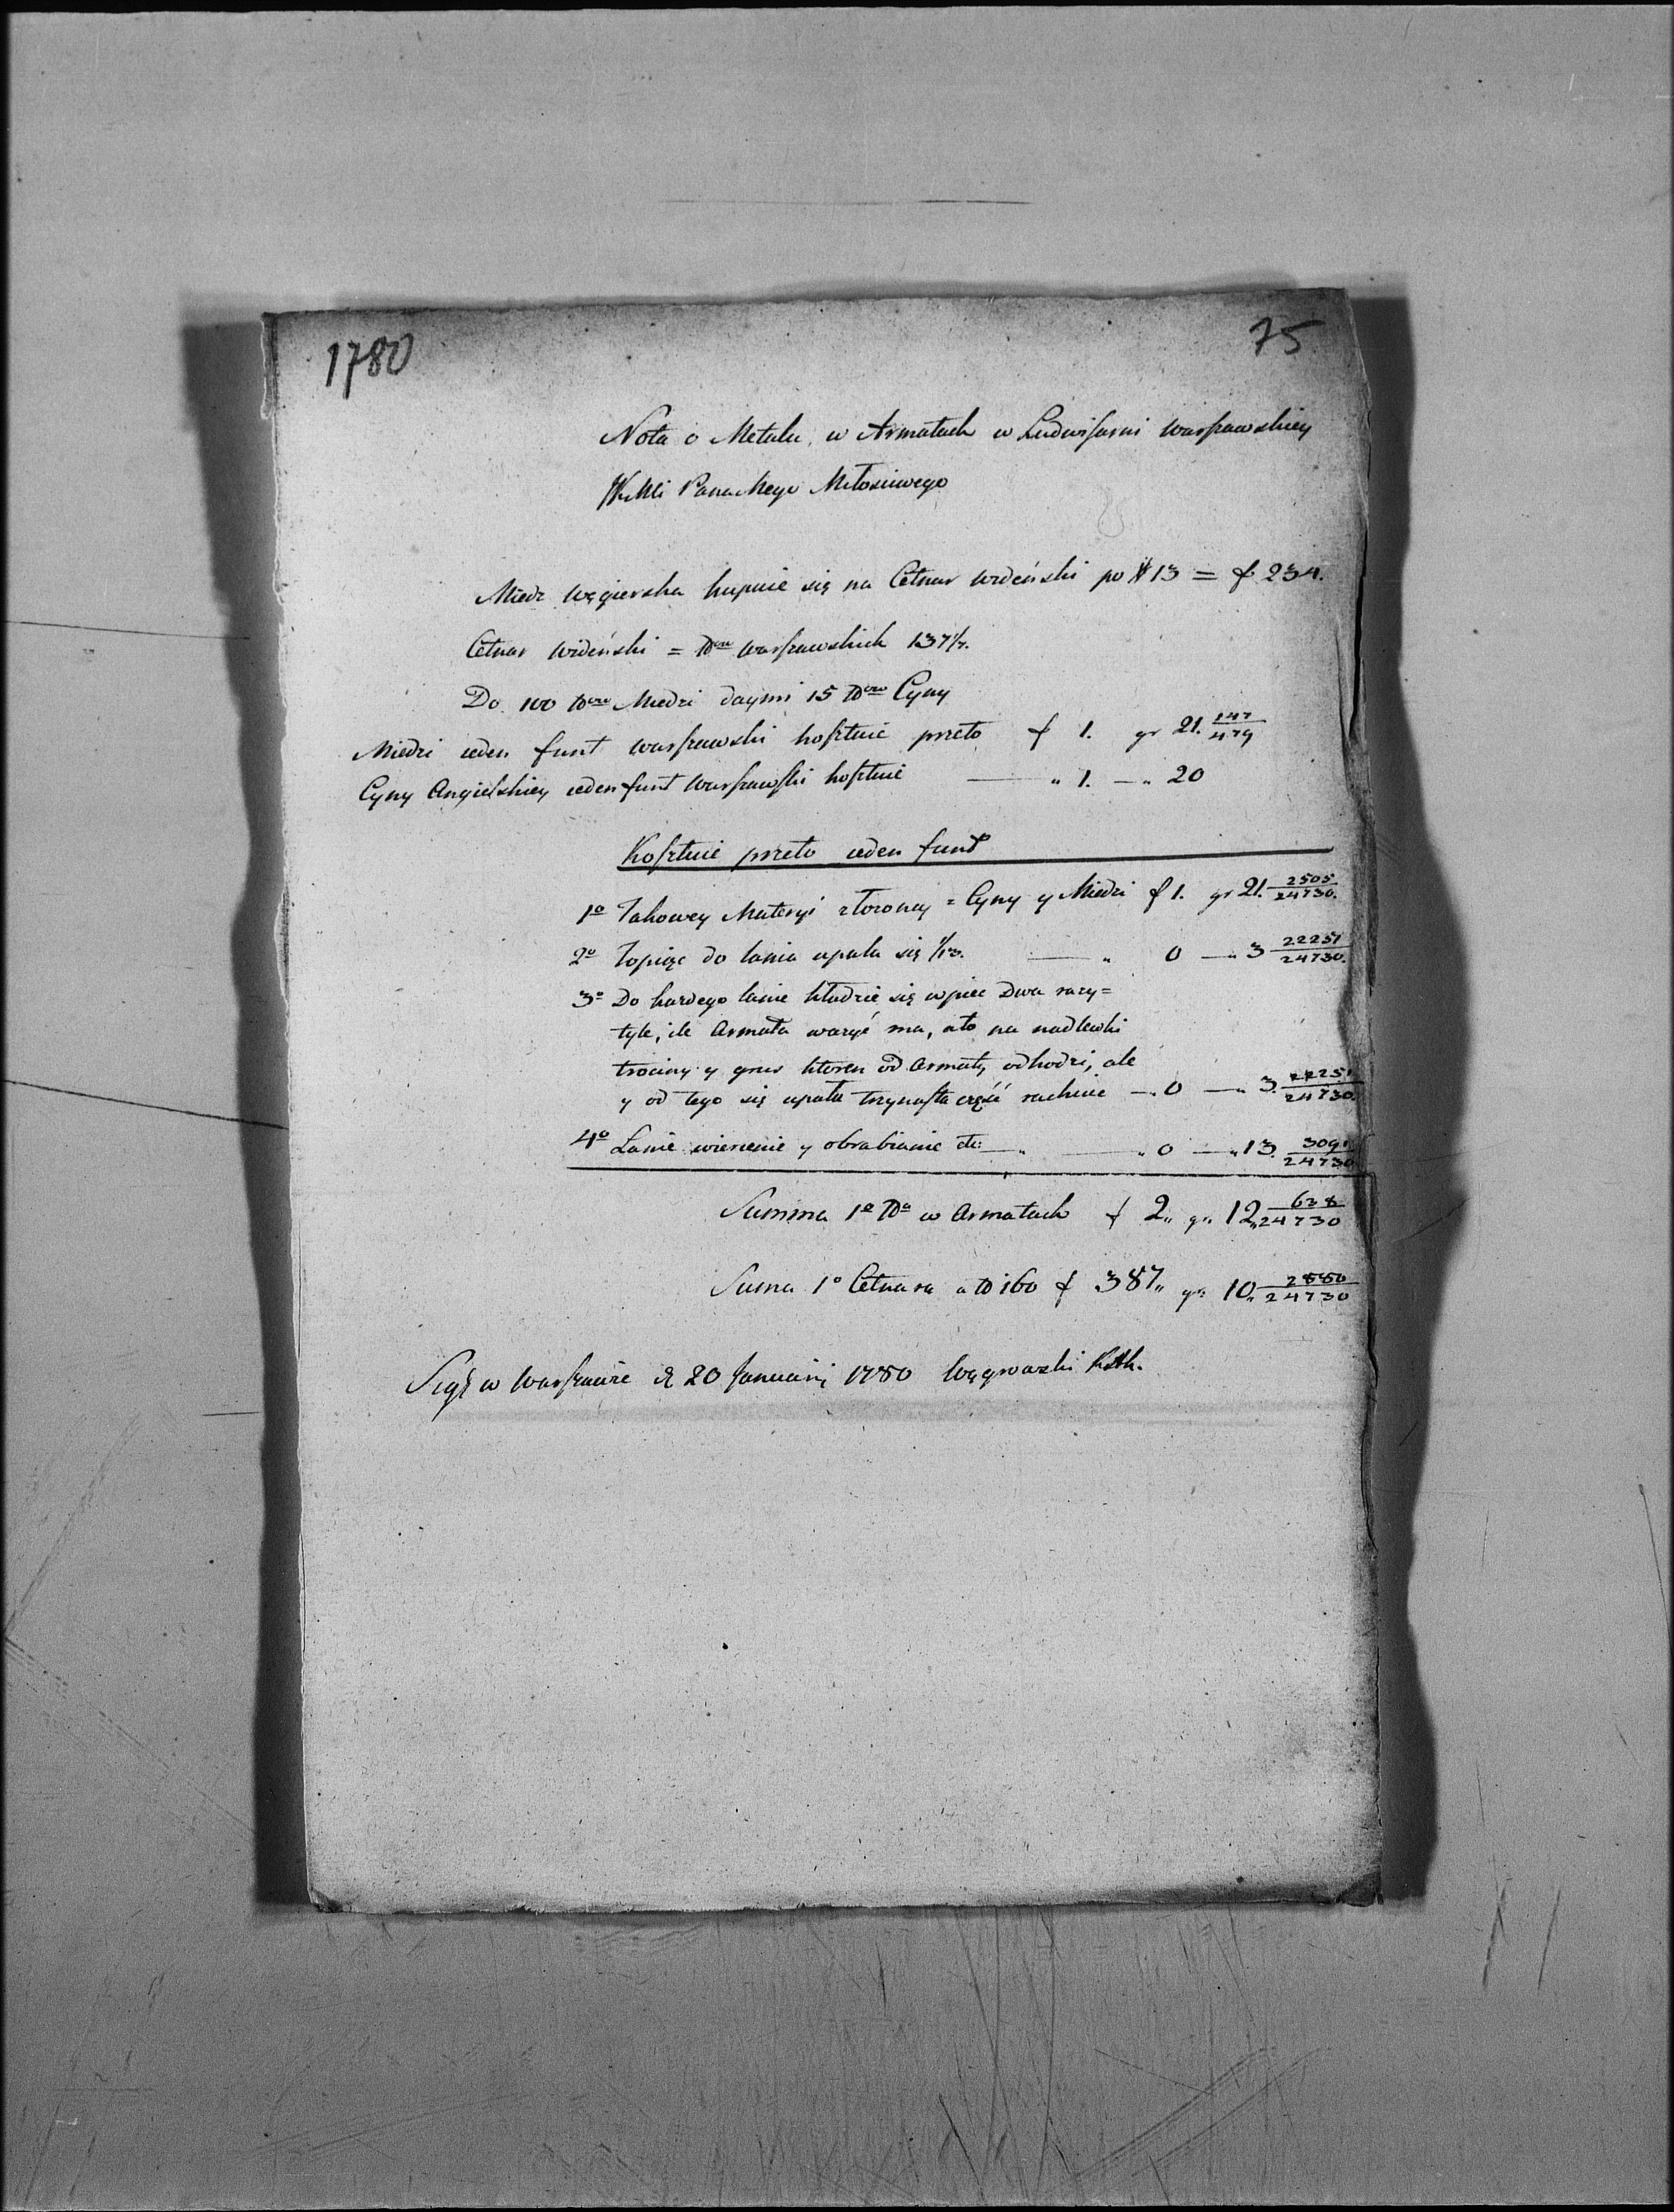 1780
75
Nota o Metalu, w Armatach w Ludwisarni warszawskiey
JKMci Pana Mego Miłościwego
Miedz węgierska kupuie się na Cetnar wideński po # 13 = f 234.
Cetnar wideński = ℔ów warszawskich 137 1/7.
Do 100 ℔ów Miedzi daymi 15 ℔ów Cyny
Miedzi ieden funt warszawski kosztuie przeto f 1. gr 21. 147/479
Cyny Angielskiey ieden funt warszawski kosztuie — „ 1. — „ 20
Kosztuie przeto ieden funt
1o Takowey Materyi złozoney = Cyny y Miedzi f 1. gr 21. 2505/24730.
2o Topiąc do lania upala się 1/13. — „ 0 — „ 3 22251/24730.
3o Do kazdego lanie kładzie się w piec dwa razy=
tyle, ile Armata wazyć ma, a to na nadlewki
trociny y grus ktoren od Armaty odhodzi, ale
y od tego się upala trzynasta część rachuie — „ 0 — „ 3. 22251/24730.
4o Lanie wiercenie y obrabianie etc: — „ — „ 0 — „ 13. 3091/24730
Summa 1o ℔a w Armatach f 2„ gr„ 12„ 638/24730
Suma 1o Cetnara a ℔ 160 f 387„ gr„ 10„ 2880/24730
w Warszawie d 20 Januarij 1780 Węgrzacki